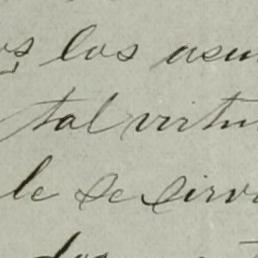 los asun
tal virtu
le se sirv